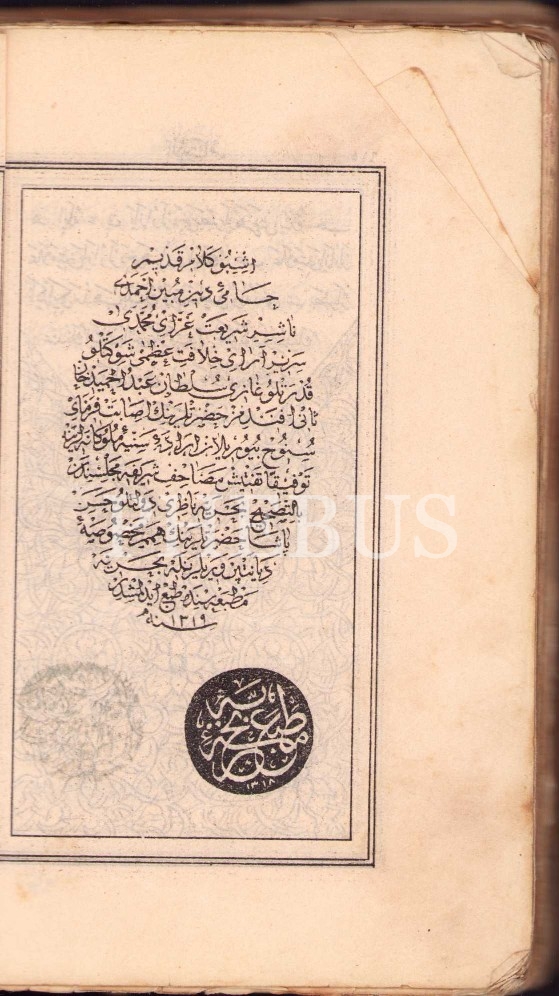 اشبو كلام قديم
حامئ دين مبين احمدى
ناشر شريعت غراى محمدى
سرير اراى خلافت عظمى شوكتلو
قدرتلو غازى سلطان عبد الحميد خان
ثانى افندمز حضرتلرينك اصابت فرماى
سنوح بيوريلان اراده سنيه ملوكانه لرينه
توفيقا تفتيش مصاحف شريفه مجلسندن
بالتصحيح بحريه ناظرى دولتلو حسن
پاشا حضرتلرينك همم مخصوصه
ديانتپرورانه لريله بحريه
مطبعه سنده طبع ايدلمشدر
سنه ١٣١٩
مطبعه بحريه
١٣١٨
PHEBUS